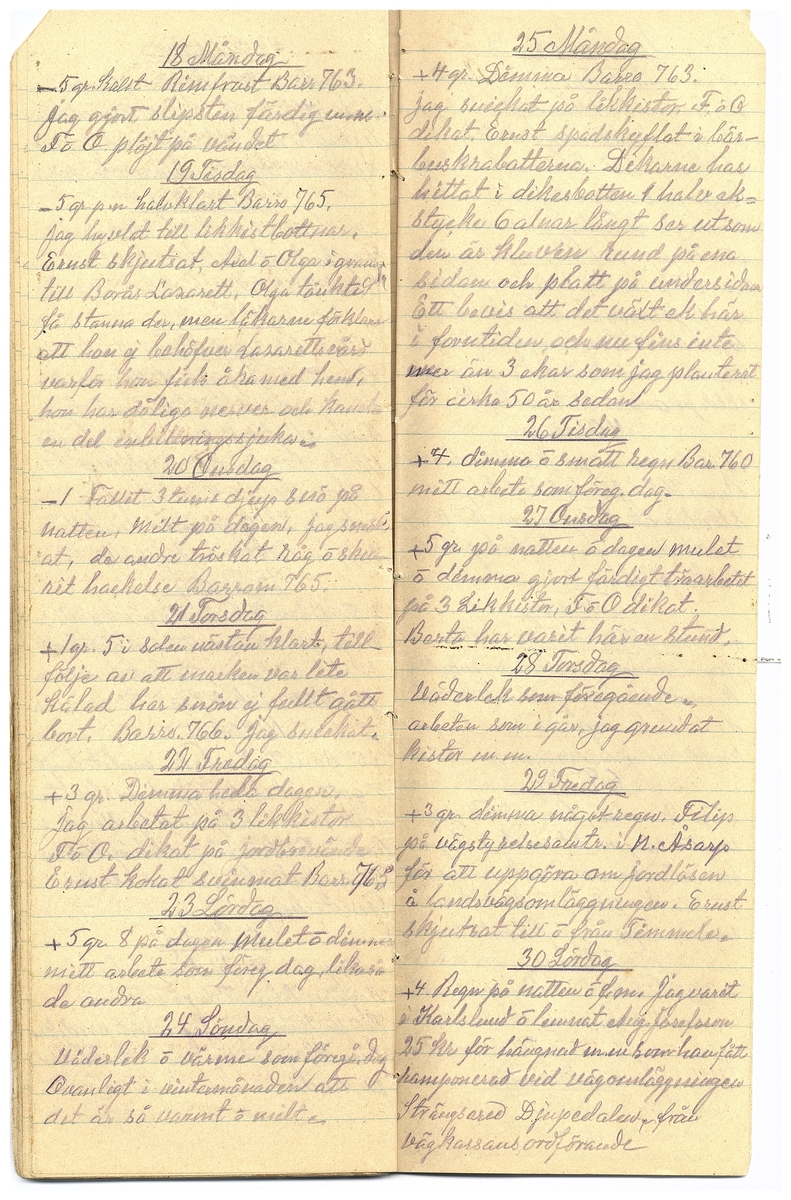 18 Måndag
-5 gr. kallt Rimfrost Barr 763.
Jag gjort slipsten färdig m.m.
F o O. plöjt på vändet
19 Tisdag
-5 gr p.m halvklart Barro 765.
jag hyvlat till likkistbottnar.
Ernst skjutsat, Axel o Olga i
till Borås Lazarett, Olga tänkt
få stanna der, men läkarne förklara
att hon ej behöfver Lazarettsvård
varför hon fick åka med hem,
hon har dåliga nerver och kanske
en del inbillningssjuka.
20 Onsdag
-1 Fallet 3 tums djup snö på
natten, Milt på dagen, jag snick
at, de andre tröskat råg o sku-
rit hackelse Barrom 765.
21 Torsdag
+1 gr. 5 i solen nästan klart, till
följe av att marken var lite
kälad har snön ej fullt gått
bort. Barro. 766. Jag snickat.
22 Fredag
+3 gr. Dimma hela dagen.
Jag arbetat på 3 likkistor
F o O. dikat på
Ernst kokat svinmat Barr. 765
23 Lördag
+5 gr 8 på dagen Mulet o dimma
mitt arbete som föreg dag, likaså
de andra
24 Söndag
Väderlek o värme som föregå. dag
Ovanligt i vintermånaden att
det är så varmt o milt.
25 Måndag
+4 gr. Dimma Barro 763.
Jag snickat på likkistor. F. o O
dikat. Ernst spadskyflat i bär-
buskrabatterna. Dikarne har
hittat i dikesbotten 1 halv ek=
stycke 6 alnar långt ser ut som
den är kluven rund på ena
sidan och platt på undersidan
Ett bevis att det växt ek här
i forntiden och nu fins inte
mer än 3 ekar som jag planterat
för cirka 50 år sedan
26 Tisdag
+4. dimma o smått regn Bar. 760
mitt arbete som föreg. dag.
27 Onsdag
+5 gr. på natten o dagen mulet
o dimma gjort färdigt träarbetet
på 3 Likkistor, F o O dikat.
Berta har varit här en stund.
28 Torsdag
Väderlek som föregående.
arbeten som i går, jag grundat
kistor m.m.
29 Fredag
+3 gr. dimma något regn. Filip
på vägstyrelsesamtr. i N. Åsarp
för att uppgöra om jordlösen
å landsvägsomläggningen. Ernst
skjutsat till o från Timmele.
30 Lördag
+4 Regn på natten o f.m. Jag varit
i Karlslund o lemnat Aug Josefsson
25 kr för hängnad m.m som han fått
ramponerad vid vägomläggningen
Strängsered Djupedalen, från
vägkassans ordförande